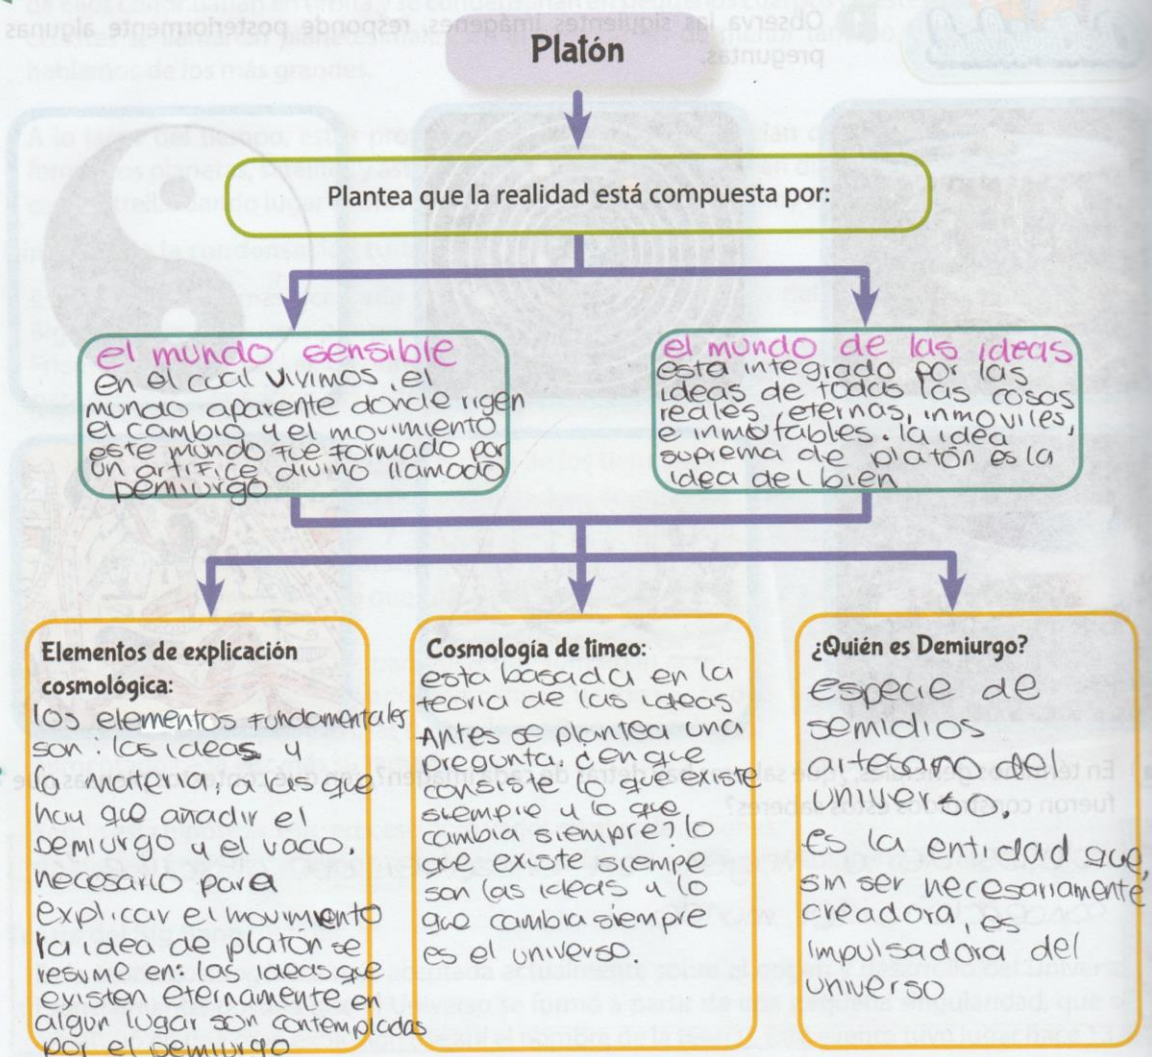 Observa las siguientes imágenes, responde posteriormente algunas
preguntas.
hablamos de los más grandes.
Platón
Plantea que la realidad está compuesta por:
el mundo sensible
en el cual vivimos, el
mundo aparente donde rigen
el cambio y el movimiento
este mundo fue formado por
un artífice divino llamado
Demiurgo
el mundo de las ideas
esta integrado por las
ideas de todas las cosas
reales, eternas, inmoviles,
e inmutables. la idea
suprema de platón es la
idea del bien
Elementos de explicación
cosmológica:
los elementos fundamentales
son: las ideas y
la materia, a las que
hay que añadir el
Demiurgo y el vacio.
necesario para
explicar el movimiento
la idea de platón se
resume en: las ideas que
existen eternamente en
algun lugar son contempladas
por el Demiurgo
Cosmología de timeo:
esta basada en la
teoria de las ideas
Antes se plantea una
pregunta ¿en que
consiste lo que existe
siempre y lo que
cambia siempre? lo
que existe siempre
son las ideas y lo
que cambia siempre
es el universo.
¿Quién es Demiurgo?
especie de
semidios
artesano del
universo.
es la entidad que,
sin ser necesariamente
creadora, es
impulsadora del
universo